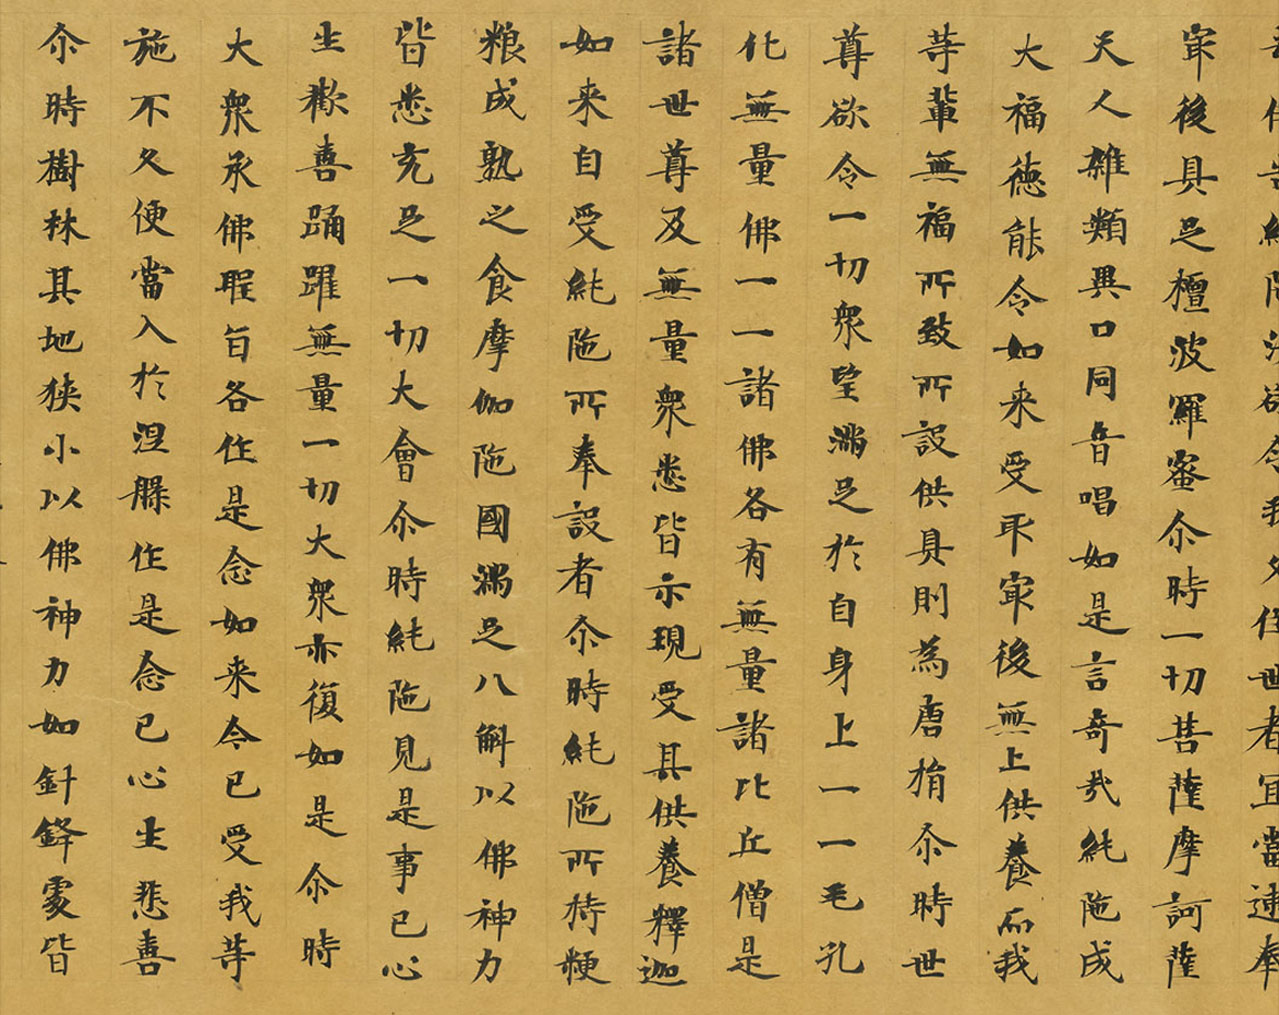 世者宜當速奉
最後具足檀波羅蜜尒時一切菩薩摩訶薩
天人雜類異口同音唱如是言奇哉純陁成
大福德能令如来受取最後無上供養而我
等輩無福所致所設供具則為唐捐尒時世
尊欲令一切衆望滿足於自身上一一毛孔
化無量佛一一諸佛各有無量諸比丘僧是
諸世尊及無量衆悉皆示現受其供養釋迦
如来自受純陁所奉設者尒時純陁所持粳
粮成熟之食摩伽陁國滿足八斛以佛神力
皆悉充足一切大會尒時純陁見是事已心
生歡喜踊躍無量一切大衆亦復如是尒時
大衆承佛聖旨各作是念如来今已受我等
施不久便當入於涅槃作是念已心生悲喜
尒時樹林其地狹小以佛神力如針鋒處皆